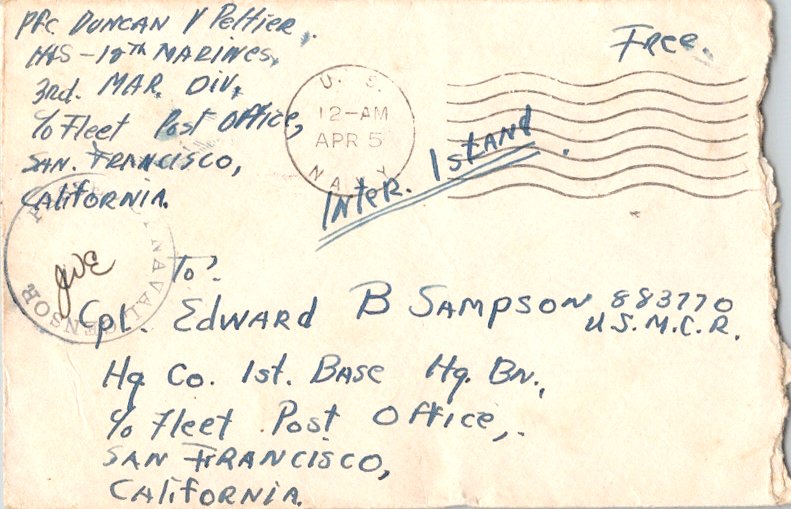 Pfc. Duncan V Peltier.
H&S - 18th Marines,
3rd. Mar. Div,
c/o Fleet Post Office,
San. Francisco,
California.
Free.
U. S.
12-AM
APR 5
NAVY
Inter. Island.
NAVAL
CENSOR
JWE
To:
Cpl. Edward B Sampson 883770
U.S.M.C.R.
Hq Co. 1st. Base Hq. Bn.,
c/o Fleet Post Office,.
San Francisco,
California.